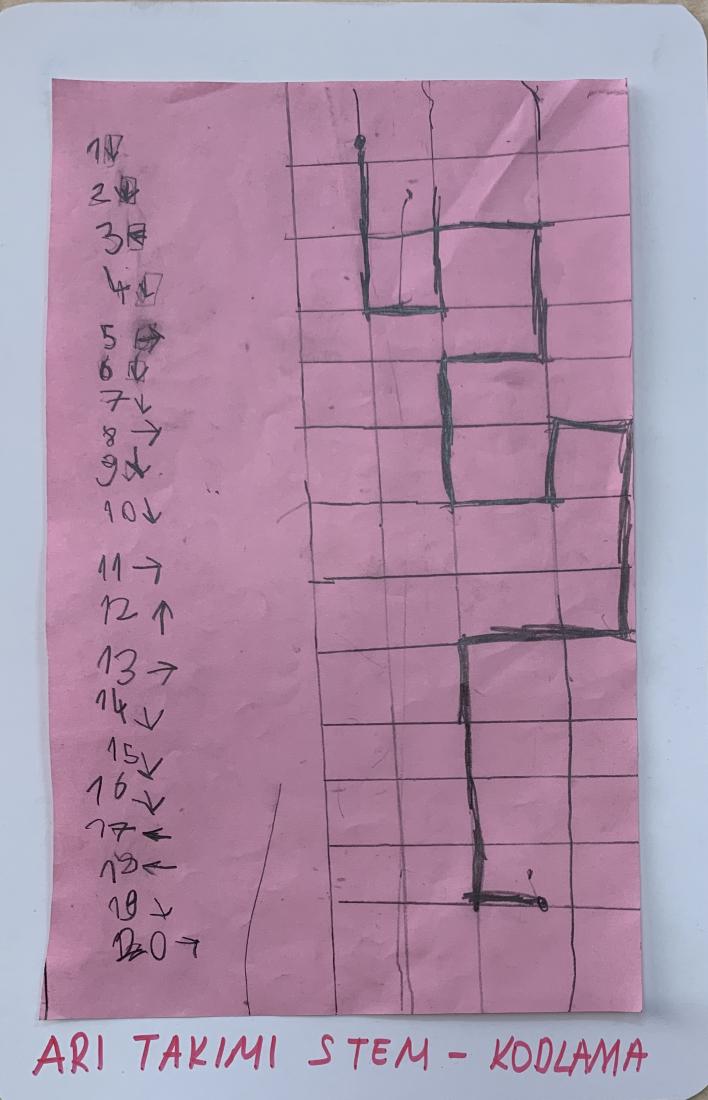 1↓
2↓
3←
4↓
5→
6↓
7↓
8→
9↓
10↓
11→
12↑
13→
14↓
15↓
16↓
17←
18←
19↓
20→
ARI TAKIMI STEM - KODLAMA